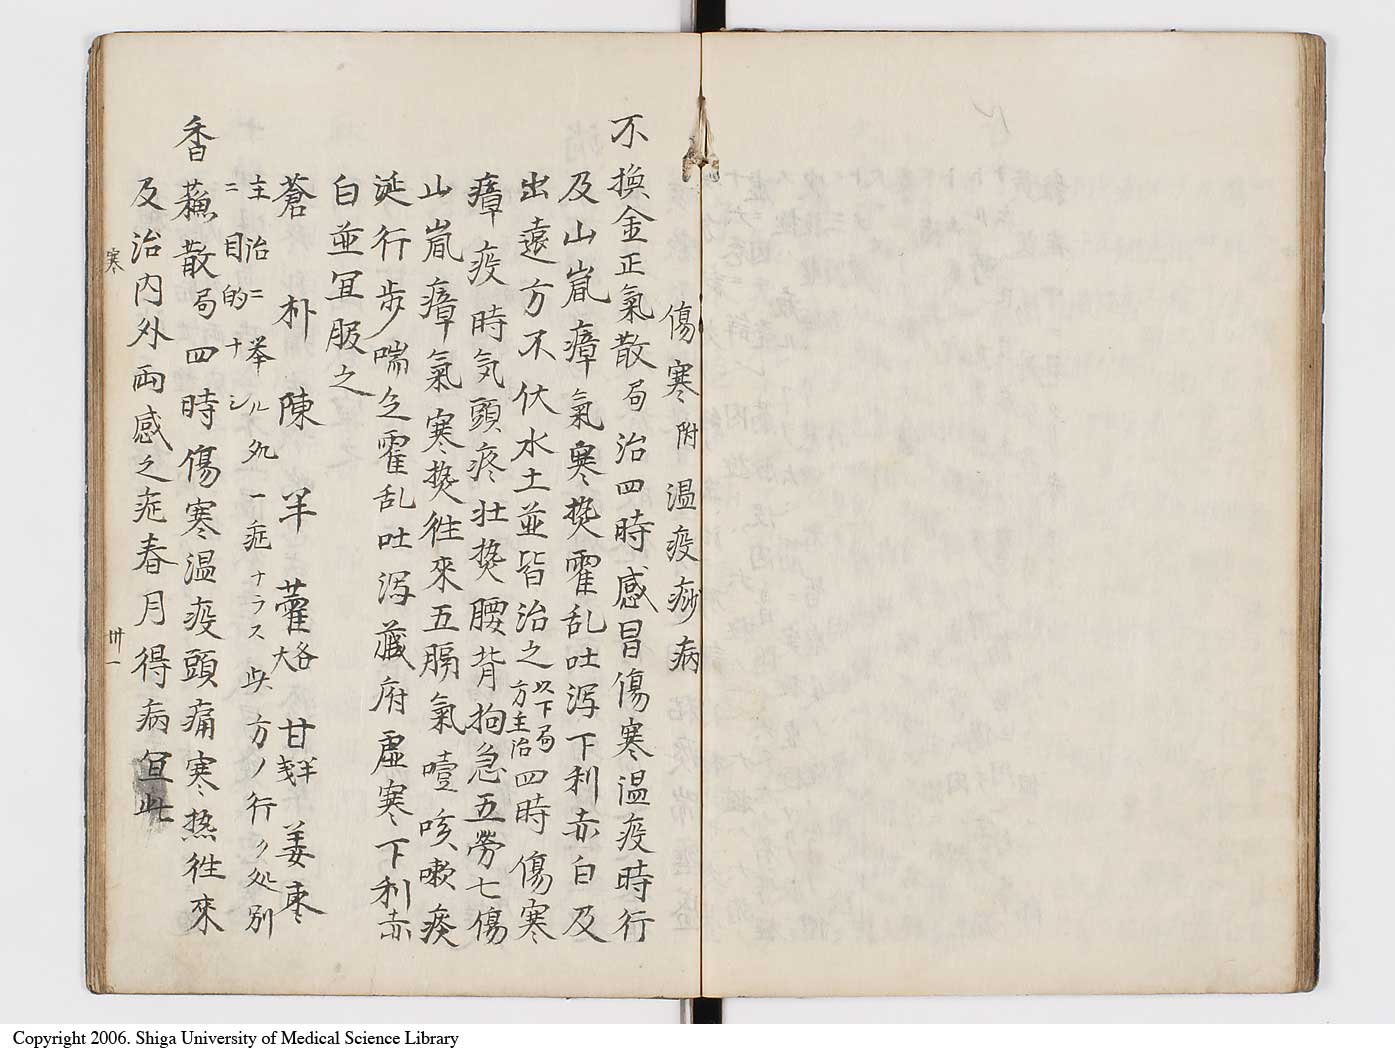 傷寒附 温疫痧病
不換金正氣散局治四時感冒傷寒温疫時行
及山嵐瘴氣寒㷫霍乱吐泻下利赤白及
出遠方不伏水土並皆治之以下局方主治四時傷寒
瘴疫時気頭疼壮㷫腰背拘急五勞七傷
山嵐瘴氣寒㷫徃來五膈氣噎咳嗽痰
涎行歩喘乏霍乱吐泻蔵府虛寒下利赤
白並宜服之
蒼 朴 陳 半 藿各大 甘半戔 姜棗
主治ニ挙ル処一症ナラス此方ノ行ク処別
ニ目的ナシ
香蘓散局四時傷寒温疫頭痛寒热徃來
及治内外両感之症春月得病宜此
寒
卅一
Copyright 2006. Shiga University of Medical Science Library